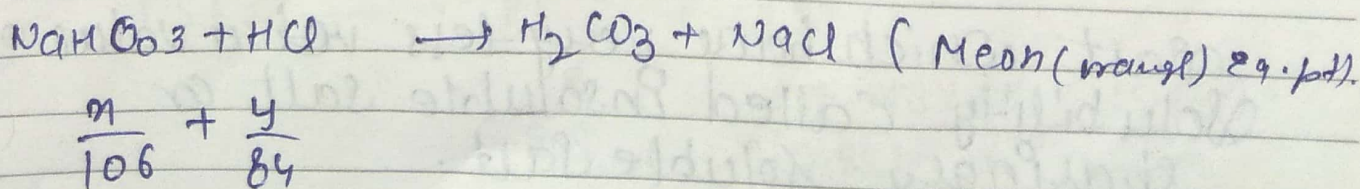 NaHCO3 + HCl → H2CO3 + NaCl ( MeOH (orange) eq. pt).
x/106 + y/84